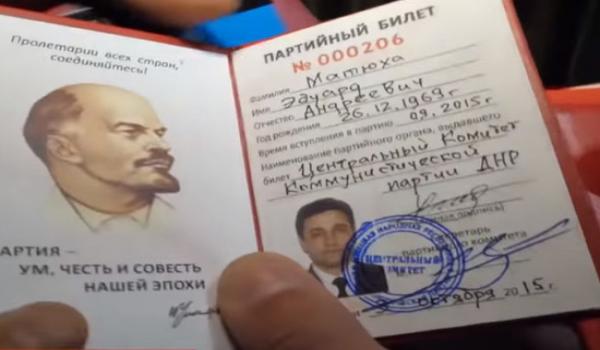 Пролетарии всех стран,
соединяйтесь!
АРТИЯ –
УМ, ЧЕСТЬ И СОВЕСТЬ
НАШЕЙ ЭПОХИ
ПАРТИЙНЫЙ БИЛЕТ
№ 000206
Фамилия Матюха
Имя Эдуард
Отчество Андреевич
Год рождения 26.12.1969г.
Время вступления в партию 09.2015г.
Наименование партийного органа, выдавшего
билет Центральный Комитет
Коммунистической
партии ДНР
ЦЕНТРАЛЬНЫЙ
КОМИТЕТ
октября 2015г.